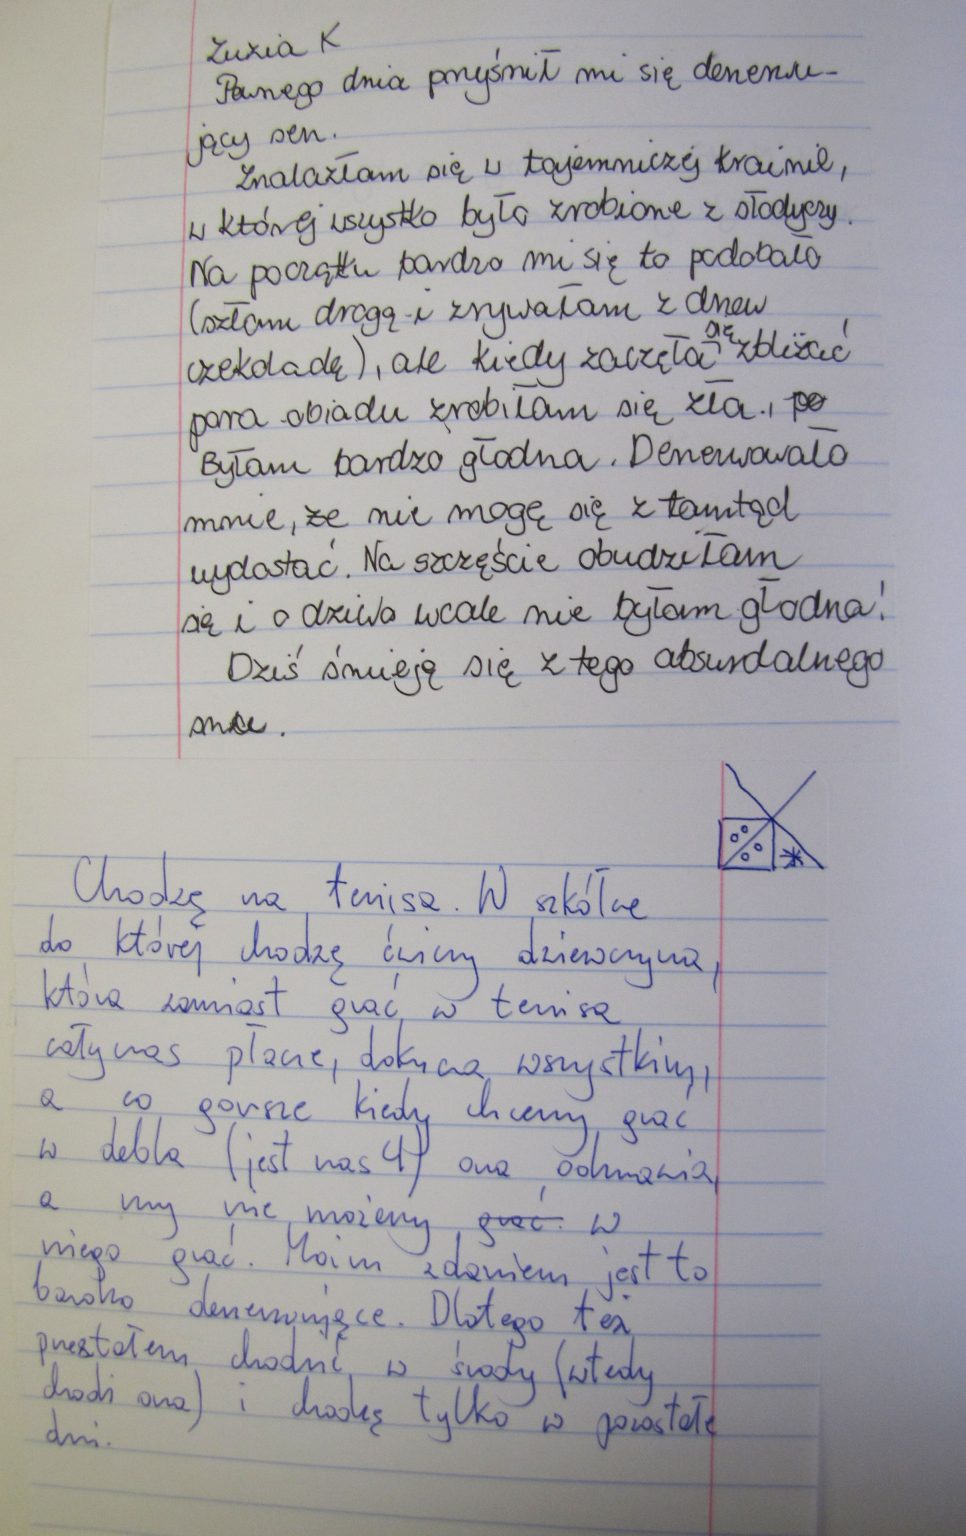 Zuzia K
Pewnego dnia przyśnił mi się denerwu-
jący sen.
Znalazłam się w tajemniczej krainie,
w której wszystko było zrobione z słodyczy.
Na początku bardzo mi się to podobało
(szłam drogą i zrywałam z drzew
czekoladę), ale kiedy zaczęła się zbliżać
pora obiadu zrobiłam się zła, po
Byłam bardzo głodna. Denerwowało
mnie, że nie mogę się z tamtąd
wydostać. Na szczęście obudziłam
się i o dziwo wcale nie byłam głodna!
Dziś śmieję się z tego absurdalnego
snu.
Chodzę na tenisa. W szkółce
do której chodzę ćwiczy dziewczyna,
która zamiast grać w tenisa
cały czas płacze, dokucza wszystkim,
a co gorsze kiedy chcemy grać
w debla (jest nas 4) ona odmawia,
a my nie możemy grać. w
niego grać. Moim zdaniem jest to
bardzo denerwujące. Dlatego też
przestałem chodzić w środy (wtedy
chodzi ona) i chodzę tylko w pozostałe
dni.